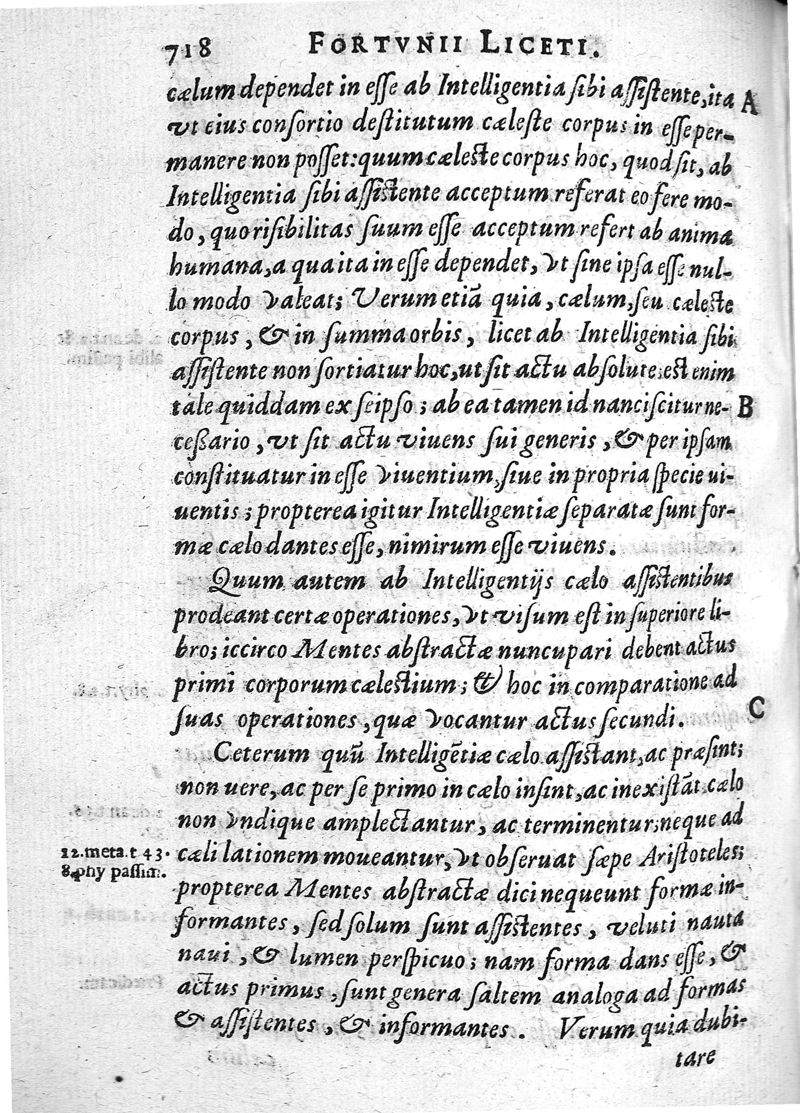 718 FORTVNII LICETI.
cælum dependet in esse ab Intelligentia sibi assistente, ita A
vt eius consortio destitutum cæleste corpus in esse per-
manere non posset: quum cæleste corpus hoc, quod sit, ab
Intelligentia sibi assistente acceptum referat eo fere mo-
do, quo risibilitas suum esse acceptum refert ab anima
humana, a qua ita in esse dependet, vt sine ipsa esse nul-
lo modo valeat; Verum etiā quia, cælum, seu cæleste
corpus, & in summa orbis, licet ab Intelligentia sibi
assistente non sortiatur hoc, ut sit actu absolute; est enim
tale quiddam ex seipso; ab ea tamen id nanciscitur ne- B
cessario, vt sit actu viuens sui generis, & per ipsam
constituatur in esse viuentium, siue in propria specie ui-
uentis; propterea igitur Intelligentiæ separatæ sunt for-
mæ cælo dantes esse, nimirum esse viuens.
Quum autem ab Intelligentijs cælo assistentibus
prodeant certæ operationes, vt visum est in superiore li-
bro; iccirco Mentes abstractæ nuncupari debent actus
primi corporum cælestium; & hoc in comparatione ad
suas operationes, quæ vocantur actus secundi. C
Ceterum quū Intelligētiæ cælo assistant, ac præsint;
non uere, ac per se primo in cælo insint, ac inexistāt cælo
non vndique amplectantur, ac terminentur; neque ad
12. meta. t 43. cæli lationem moueantur, vt obseruat sæpe Aristoteles;
8. phy passim. propterea Mentes abstractæ dici nequeunt formæ in-
formantes, sed solum sunt assistentes, veluti nauta
naui, & lumen perspicuo; nam forma dans esse, &
actus primus, sunt genera saltem analoga ad formas
& assistentes, & informantes. Verum quia dubi-
tare